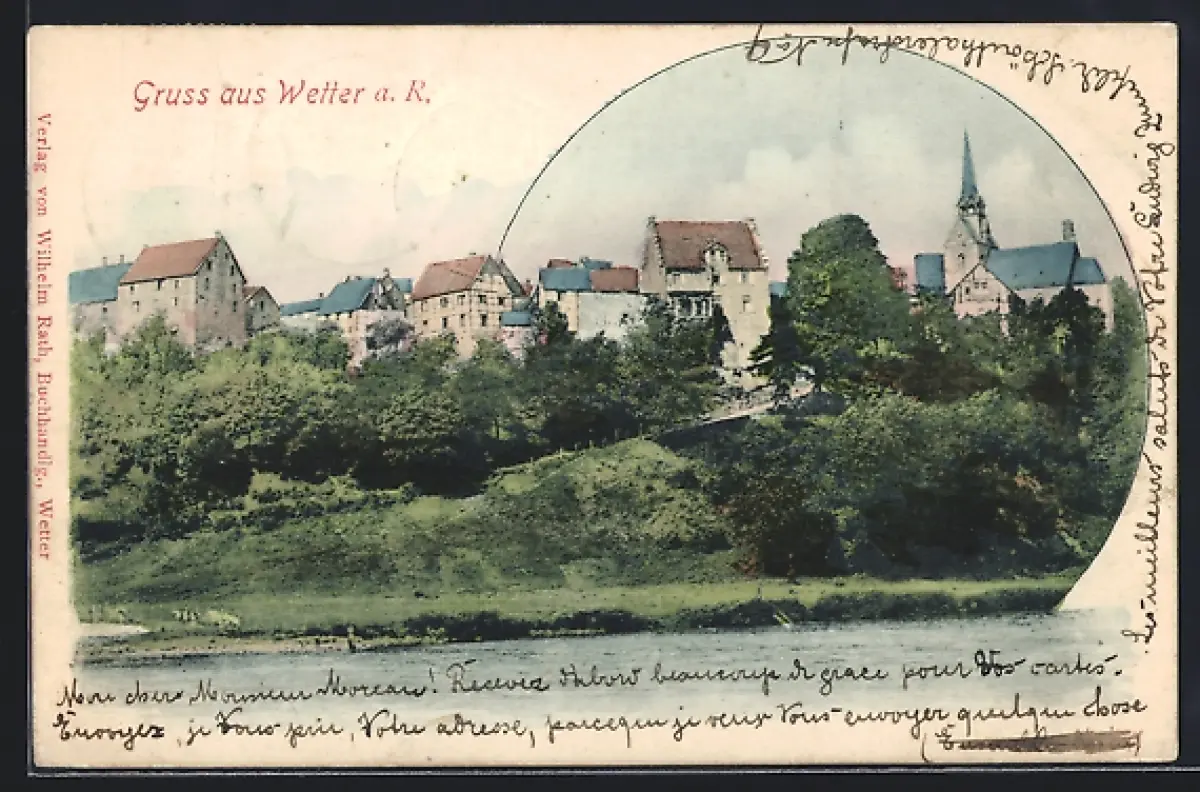 Gruss aus Wetter a. R.
Verlag von Wilhelm Rath, Buchhandlg., Wetter
Mon cher Monsieur Moreau! Recevez d'abord beaucoup de grace pour Vos cartes.
Envoyez, je Vous prie, Votre adresse, parceque je veux Vous envoyer quelque chose
Les meilleures saluts de Votre Ludwig
Schönthalerstrasse No 9